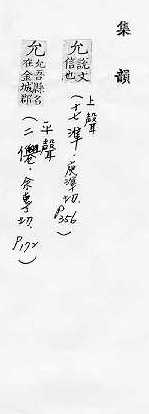 集韻
上聲
允 說文信也（十七準．庾準切．P356）
平聲
允 允吾縣名在金城郡（二僊．余專切．P172）